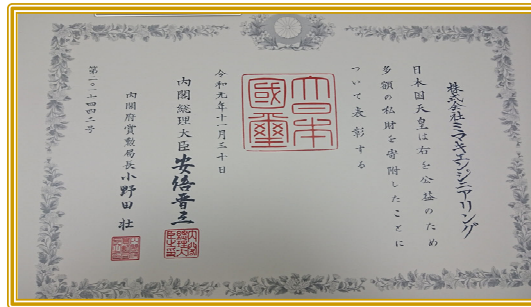 株式会社ミマキエンジニアリング
日本国天皇は右を公益のため
多額の私財を寄附したことに
ついて表彰する
大日本國璽
令和元年十一月三十日
内閣総理大臣安倍晋三
内閣府賞勲局長小野田壮